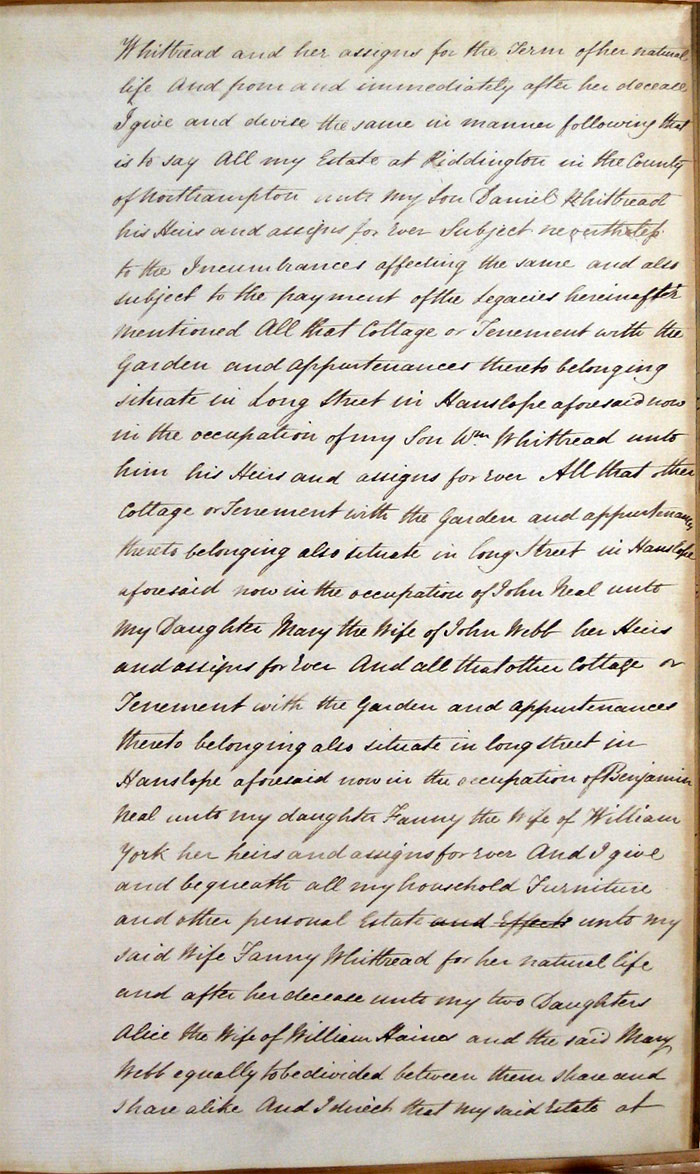 Whitbread and her assigns for the Term of her natural
life And from and immediately after her decease
I give and devise the same in manner following that
is to say All my Estate at Piddington in the County
of Northampton unto my Son Daniel Whitbread
his Heirs and assigns for Ever Subject nevertheless
to the Incumbrances affecting the same and also
subject to the payment of the Legacies hereinafter
mentioned All that Cottage or Tenement with the
Garden and appurtenances thereto belonging
situate in Long Street in Hanslope aforesaid now
in the occupation of my Son Wm Whitbread unto
him his Heirs and assigns for Ever All that other
Cottage or Tenement with the Garden and appurtenances
thereto belonging also situate in long Street in Hanslope
aforesaid now in the occupation of John Neal unto
my Daughter Mary the Wife of John Webb her Heirs
and assigns for Ever And all that other Cottage or
Tenement with the Garden and appurtenances
thereto belonging also situate in long street in
Hanslope aforesaid now in the occupation of Benjamin
Neal unto my daughter Fanny the Wife of William
York her heirs and assigns for Ever And I give
and bequeath all my household Furniture
and other personal Estate and Effects unto my
said Wife Fanny Whitbread for her natural life
and after her decease unto my two Daughters
Alice the Wife of William Haines and the said Mary
Webb equally to be divided between them share and
share alike And I direct that my said Estate at